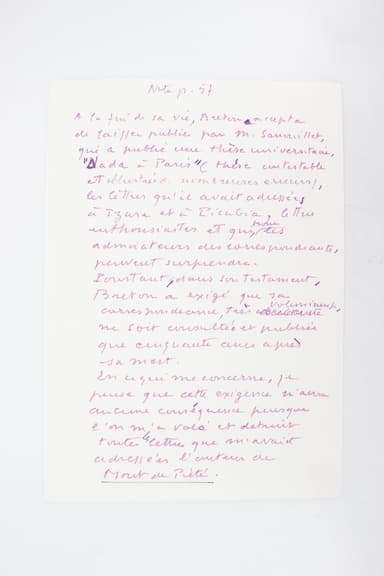 Note p. 57
A la fin de sa vie, Breton accepta
de laisser publier par M. Sanouillet,
qui a publié une thèse universitaire,
"Dada à Paris" (thèse contestable
et illustrée de nombreuses erreurs),
les lettres qu'il avait adressées
à Tzara et à Picabia, lettres
enthousiastes et qui, 
admirateurs des correspondants,
peuvent surprendre.
Pourtant, dans son testament,
Breton a exigé que sa
correspondance, très volumineuse,
ne soit consultée et publiée
que cinquante ans après
sa mort.
En ce qui me concerne, je
pense que cette exigence n'aura
aucune conséquence puisque
l'on m'a volé et détruit
toutes les lettres que m'avait
adressées l'auteur de
Mont de Piété.